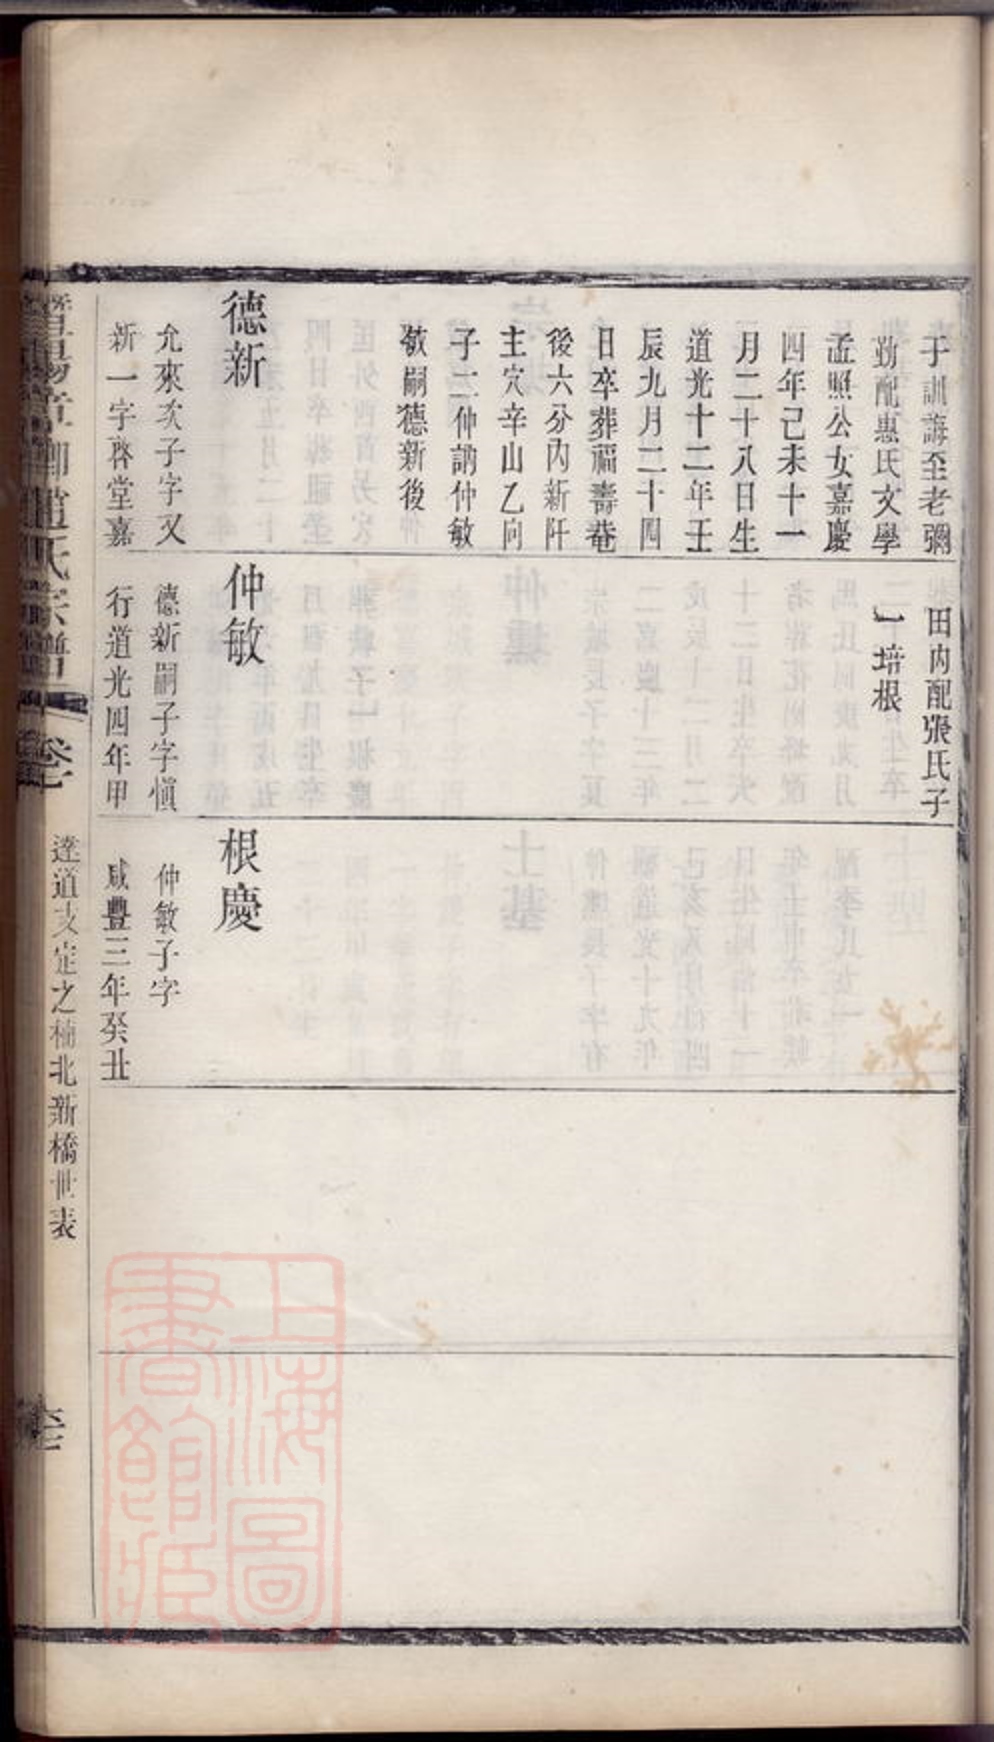 于訓誨至老彌
勤配惠氏文學
孟照公女嘉慶
四年己未十一
月二十八日生
道光十二年壬
辰九月二十四
日卒葬福壽菴
後六分內新阡
主穴辛山乙向
子二仲訥仲敏
敏嗣德新後
德新
允來次子字又
新一字啓堂嘉
田內配張氏子
一培根
仲敏
德新嗣子字愼
行道光四年甲
根慶
仲敏子字
咸豐三年癸丑
趙氏宗譜
達道支定之楠北新橋世表
上海圖
書館藏